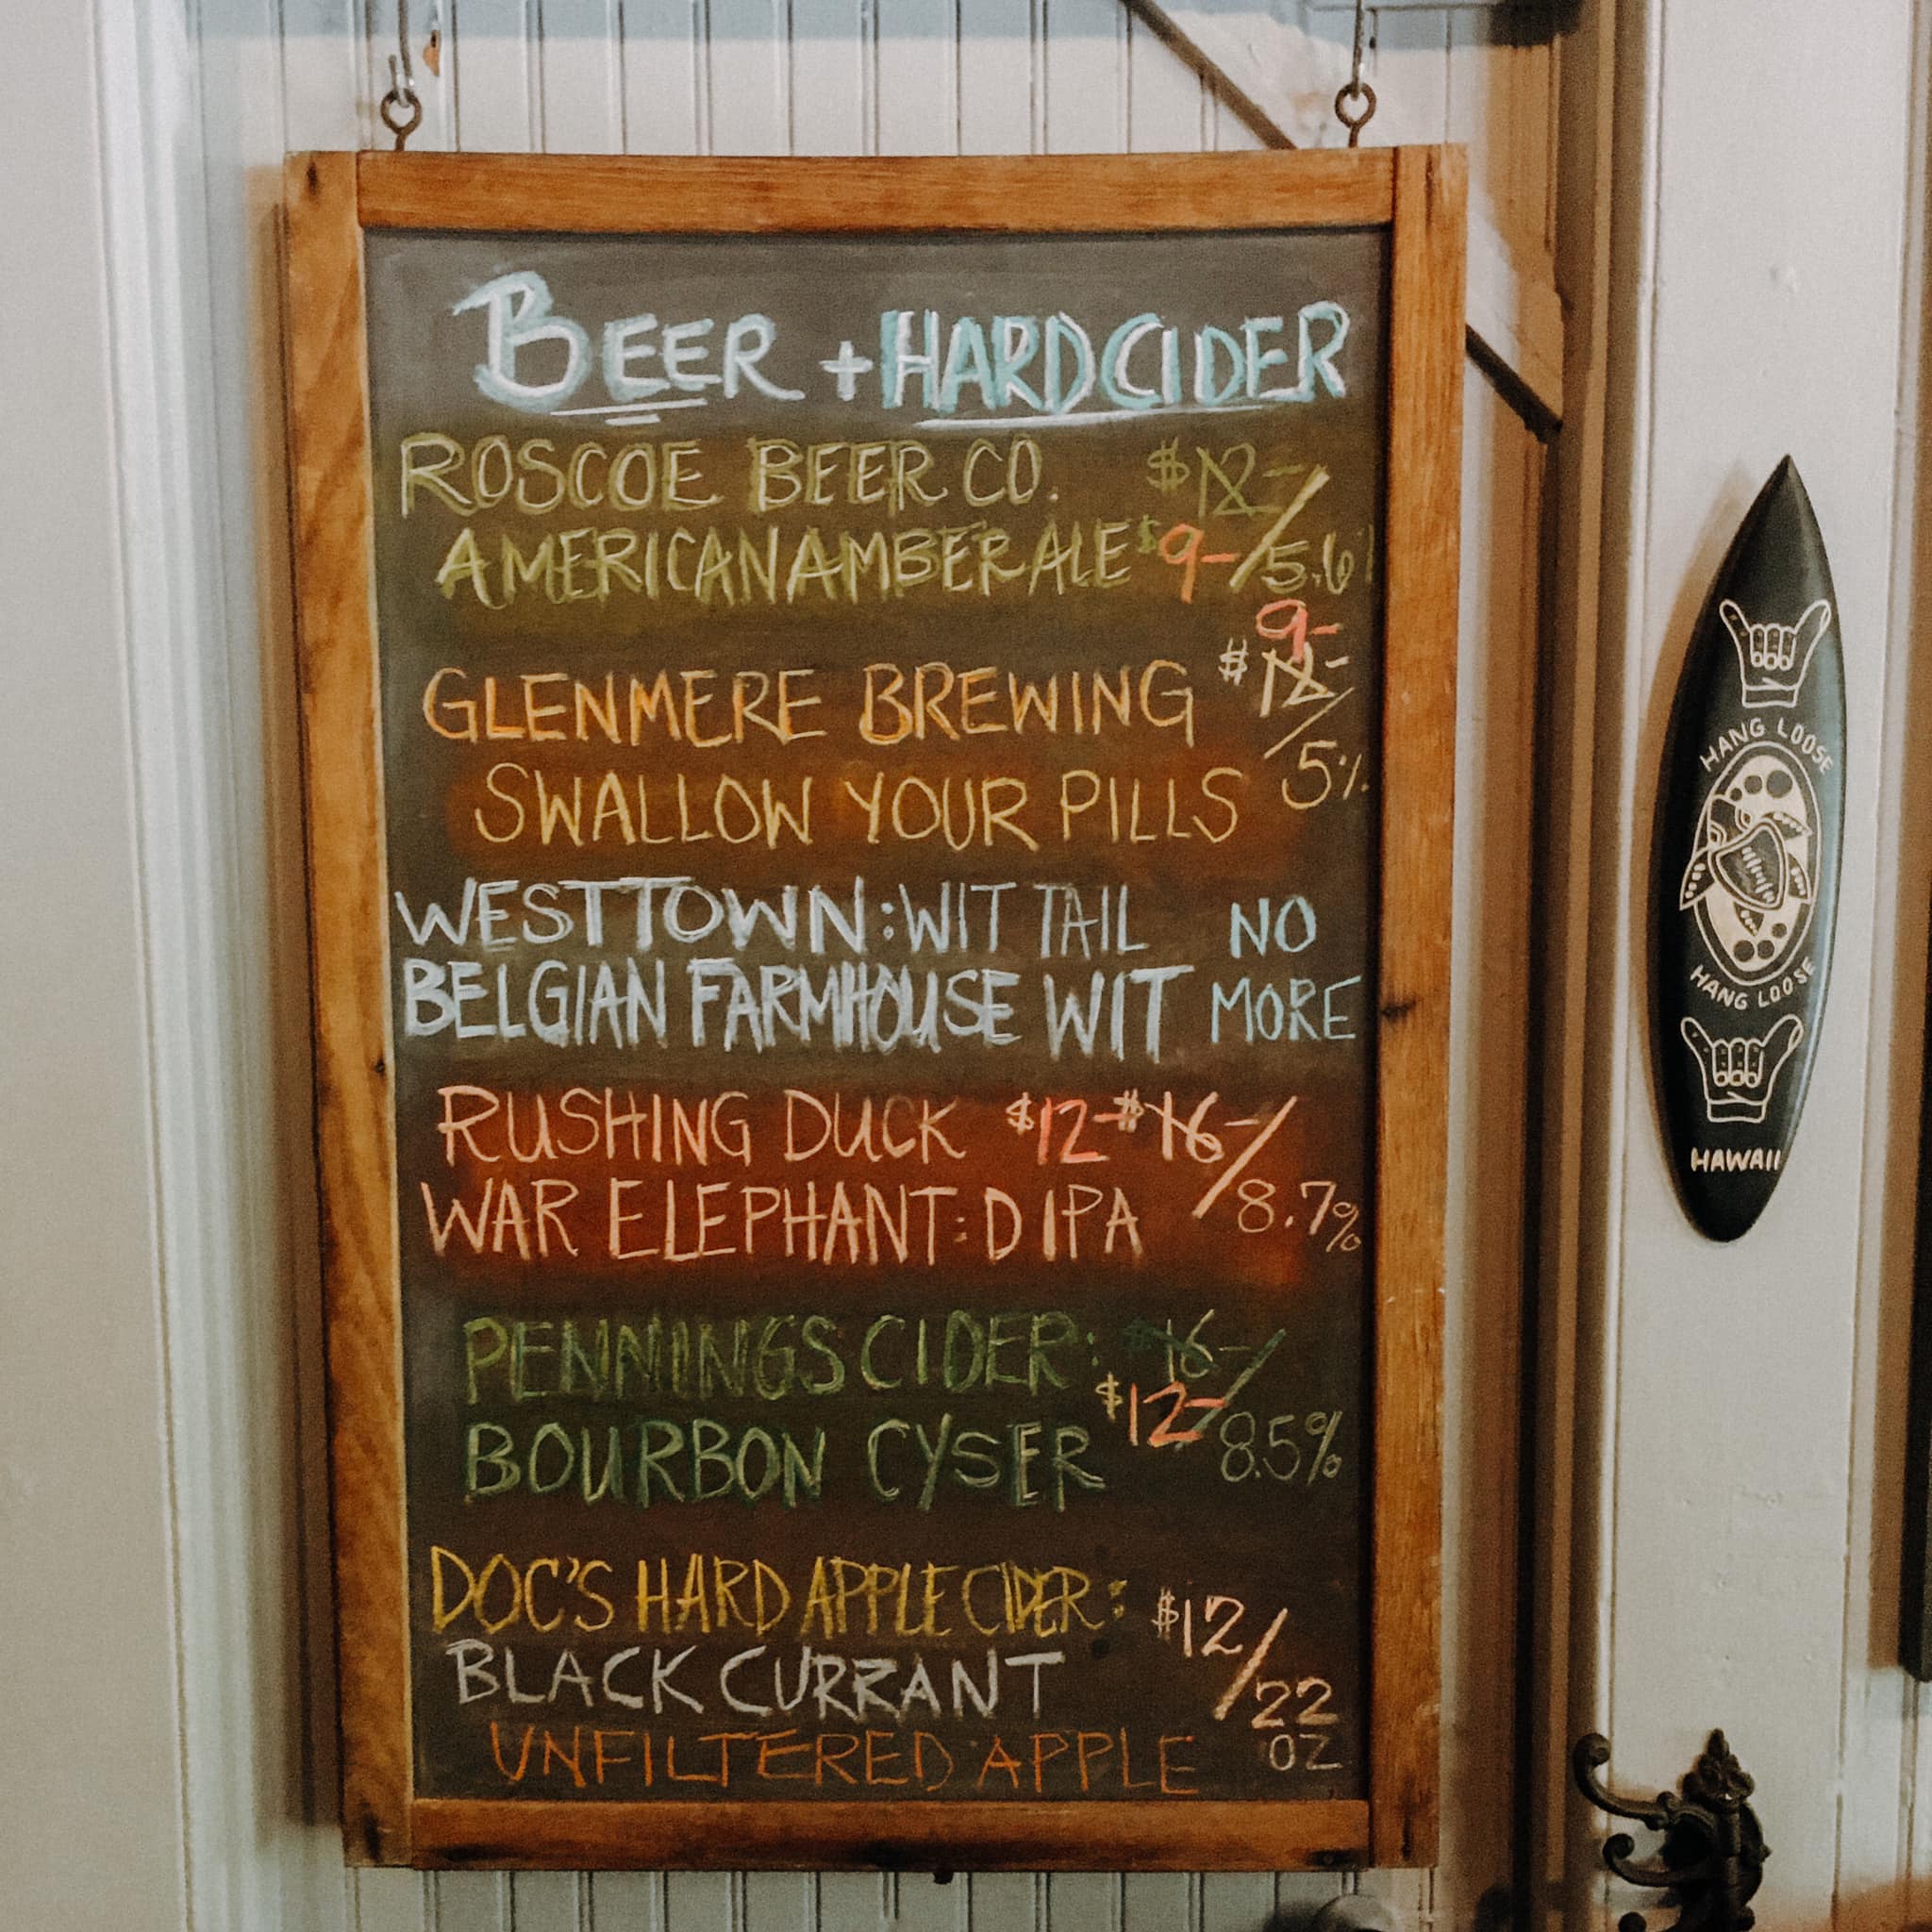 BEER + HARD CIDER
ROSCOE BEER CO. $12-/
AMERICAN AMBER ALE $9-/5.6%
9-
GLENMERE BREWING $12-/
SWALLOW YOUR PILLS 5%
WESTTOWN: WIT TAIL NO
BELGIAN FARMHOUSE WIT MORE
RUSHING DUCK $12-$16-/
WAR ELEPHANT: DIPA 8.7%
PENNINGS CIDER: $16-/
$12-
BOURBON CYSER 8.5%
DOC'S HARD APPLE CIDER: $12/
BLACK CURRANT 22
UNFILTERED APPLE OZ
HANG LOOSE
HANG LOOSE
HAWAII